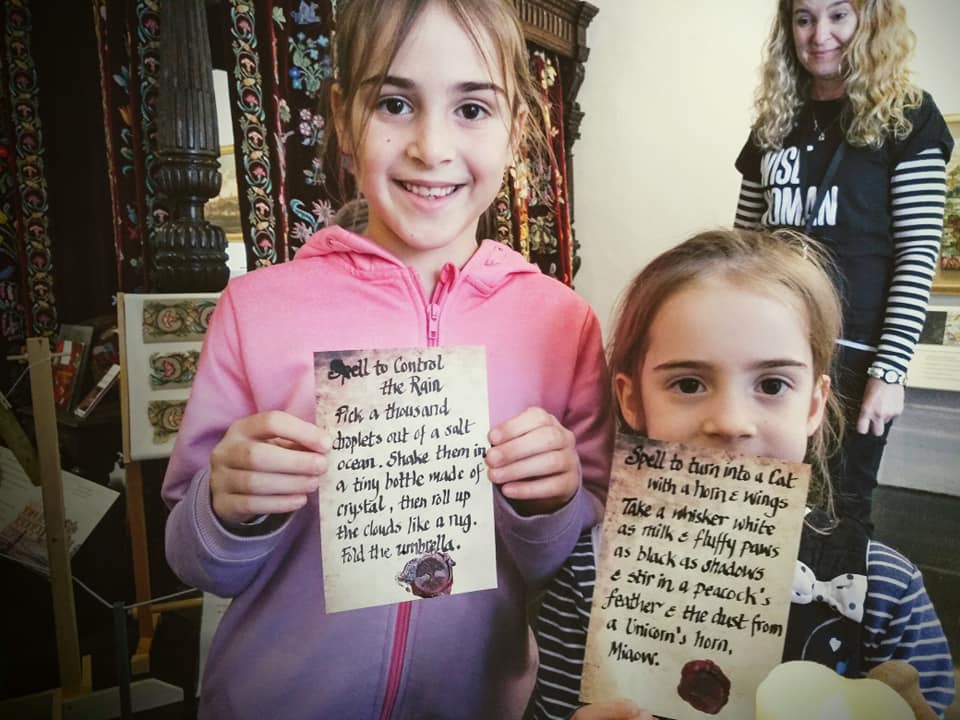 Spell to Control
the Rain
Pick a thousand
droplets out of a salt
ocean. Shake them in
a tiny bottle made of
crystal, then roll up
the clouds like a rug.
Fold the umbrella.
Spell to turn into a Cat
with a horn & wings
Take a whisker white
as milk & fluffy paws
as black as shadows
& stir in a peacock's
feather & the dust from
a Unicorn's horn.
Miaow.
WISE
WOMAN